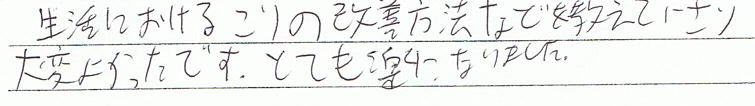 生活におけるこりの改善方法なで教えていたさり
大変よかったです。とても楽になりました。